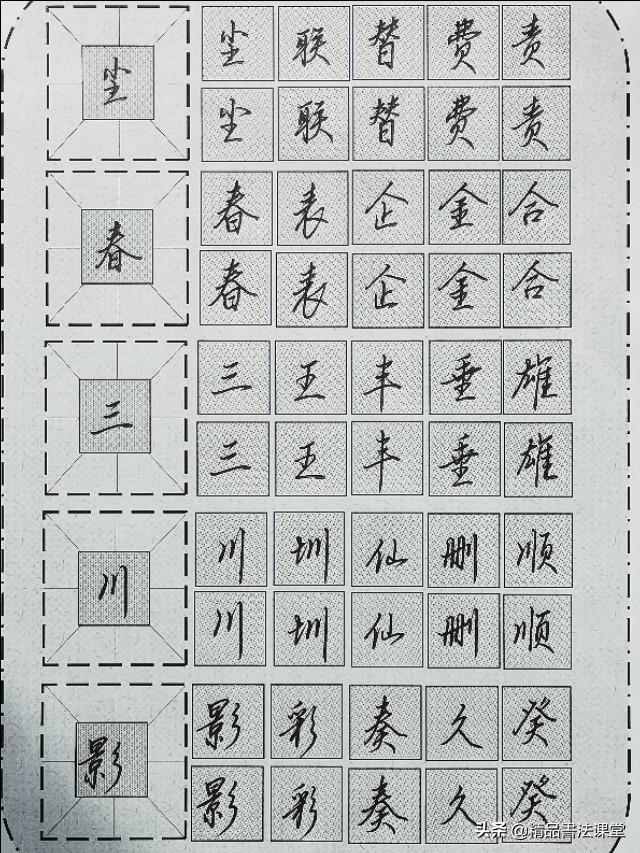 尘 尘 联 替 费 责
尘 联 替 费 责
春 春 表 企 金 合
春 表 企 金 合
三 三 王 丰 垂 雄
三 王 丰 垂 雄
川 川 圳 仙 删 顺
川 圳 仙 删 顺
影 影 彩 奏 久 癸
影 彩 奏 久 癸
头条 @精品書法课堂